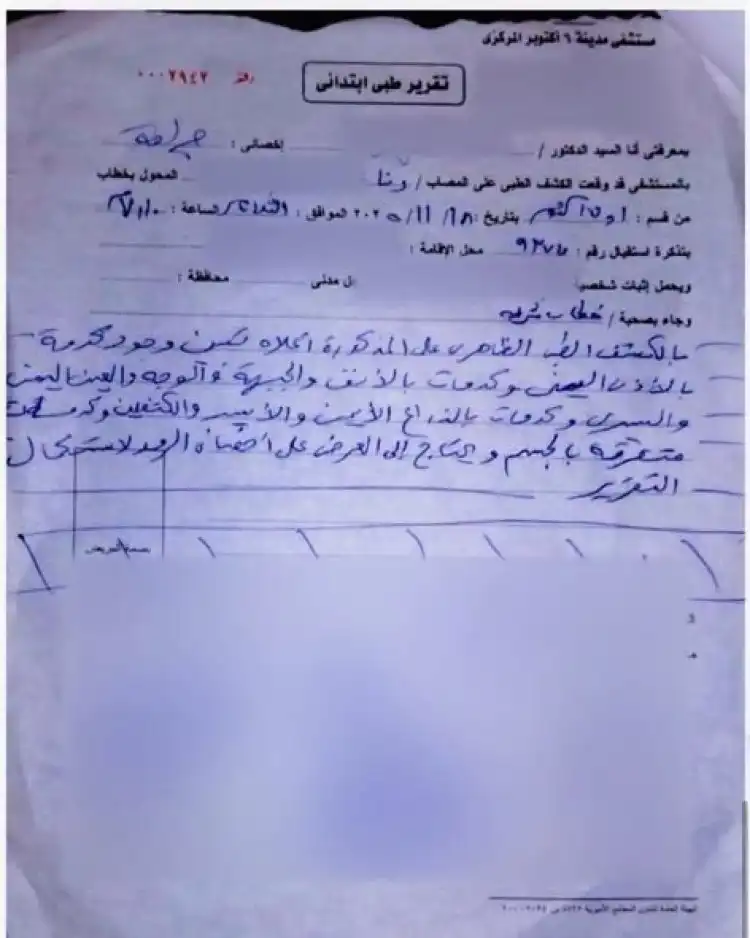 مستشفى مدينة ٦ أكتوبر المركزى
تقرير طبى ابتدائى
رقم ٠٠٠٢٩٤٢
بمعرفتى أنا السيد الدكتور / إخصائى : جراحة
بالمستشفى قد وقعت الكشف الطبى على المصاب / المحول بخطاب
من قسم : أول أكتوبر بتاريخ : ١٨ / ١١ / ٢٠٢٥ الموافق : الثلاثاء الساعة :
بتذكرة استقبال رقم : محل الإقامة :
ويحمل إثبات شخصية مدنى محافظة :
وجاء بصحبة / خطاب شرطة
بالكشف الطبى الظاهرى على المذكورة أعلاه تبين وجود
بالأذن اليمنى وكدمات بالأنف والجبهة والوجه والعين اليمنى
واليسرى وكدمات بالذراع الأيمن والأيسر والكتفين وكدمات
متفرقة بالجسم ويحتاج إلى العرض على أخصائى الرمد لاستكمال
التقرير